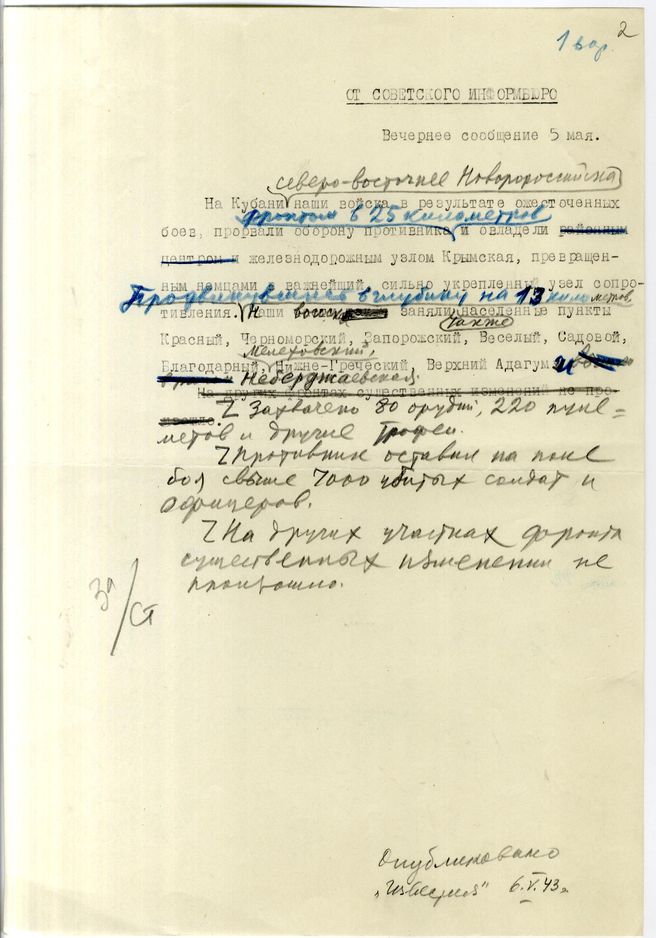 2
1 вар.
ОТ СОВЕТСКОГО ИНФОРМБЮРО
Вечернее сообщение 5 мая.
северо-восточнее Новороссийска
На Кубани наши войска в результате ожесточенных
фронтом в 25 километров
боев, прорвали оборону противника и овладели районным
центром и железнодорожным узлом Крымская, превращен-
ным немцами в важнейший, сильно укрепленный узел сопро-
Продвинувшись в глубину на 13 километров
тивления. Наши войска заняли населенные пункты
также
Красный, Черноморский, Запорожский, Веселый, Садовой,
Мелеховский,
Благодарный, Нижне-Греческий, Верхний Адагум и
Неберджаевская.
На других фронтах существенных изменений не про-
изошло.
Захвачено 80 орудий, 220 пуле=
метов и другие трофеи.
Противник оставил на поле
боя свыше 7000 убитых солдат и
офицеров.
На других участках фронта
существенных изменений не
произошло.
За/Ст
Опубликовано
„Известия" 6.V.43г.